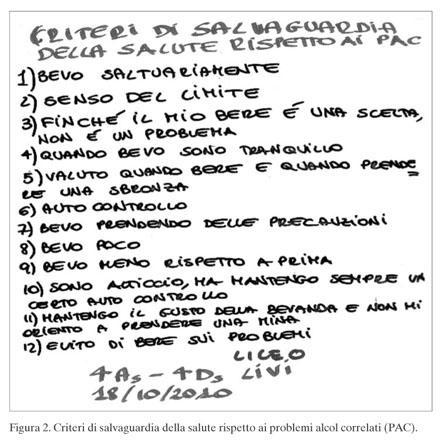 CRITERI DI SALVAGUARDIA
DELLA SALUTE RISPETTO AI PAC
1) BEVO SALTUARIAMENTE
2) SENSO DEL LIMITE
3) FINCHÉ IL MIO BERE É UNA SCELTA,
NON É UN PROBLEMA
4) QUANDO BEVO SONO TRANQUILLO
5) VALUTO QUANDO BERE E QUANDO PRENDE
RE UNA SBRONZA
6) AUTO CONTROLLO
7) BEVO PRENDENDO DELLE PRECAUZIONI
8) BEVO POCO
9) BEVO MENO RISPETTO A PRIMA
10) SONO ALTICCIO, MA MANTENGO SEMPRE UN
CERTO AUTO CONTROLLO
11) MANTENGO IL GUSTO DELLA BEVANDA E NON MI
ORIENTO A PRENDERE UNA MINA
12) EVITO DI BERE SUI PROBLEMI
LICEO
4As - 4Ds LIVI
18/10/2010
Figura 2. Criteri di salvaguardia della salute rispetto ai problemi alcol correlati (PAC).